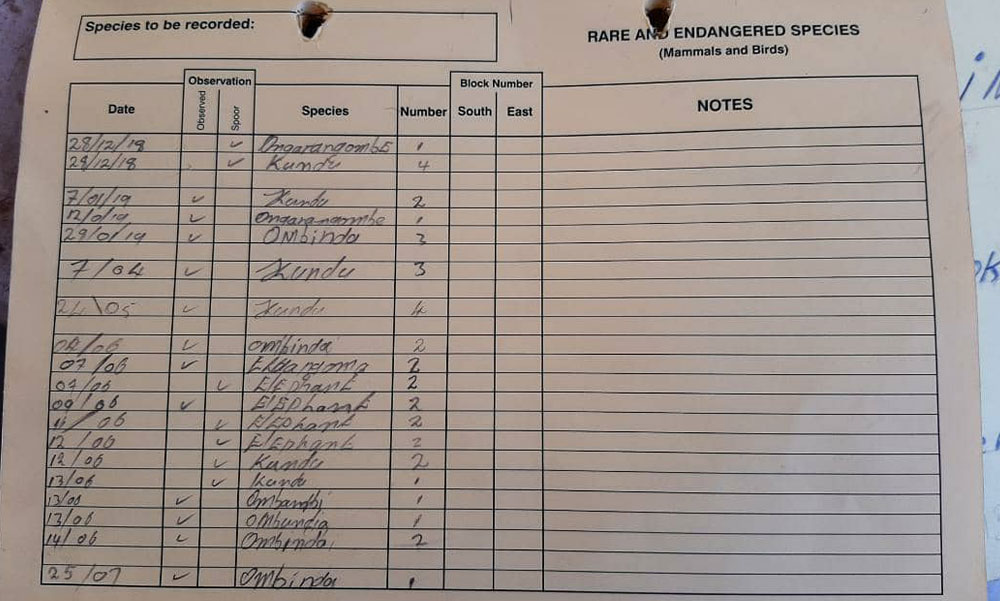 Species to be recorded:
RARE AND ENDANGERED SPECIES
(Mammals and Birds)
Date Observation Observed Spoor Species Number Block Number South East NOTES
28/12/18 ✓ OngarangombE 1
29/12/18 ✓ Kundu 4
7/01/19 ✓ Kundu 2
12/0/19 ✓ Ongarangombe 1
29/01/19 ✓ OMbinda 3
7/04 ✓ Kundu 3
24\05 ✓ Kundu 4
04/06 ✓ ombinda 2
07/06 ✓ 2
09/06 ✓ ElEphant 2
09/06 ✓ ElEphant 2
11/06 ✓ ElEphant 2
12/06 ✓ ElEphant 2
12/06 ✓ Kundu 2
13/06 ✓ Kundu 1
13/06 ✓ Ombandji 1
13/06 ✓ OMbundja 1
14/06 ✓ Ombinda 2
25/07 ✓ OMbinda 1